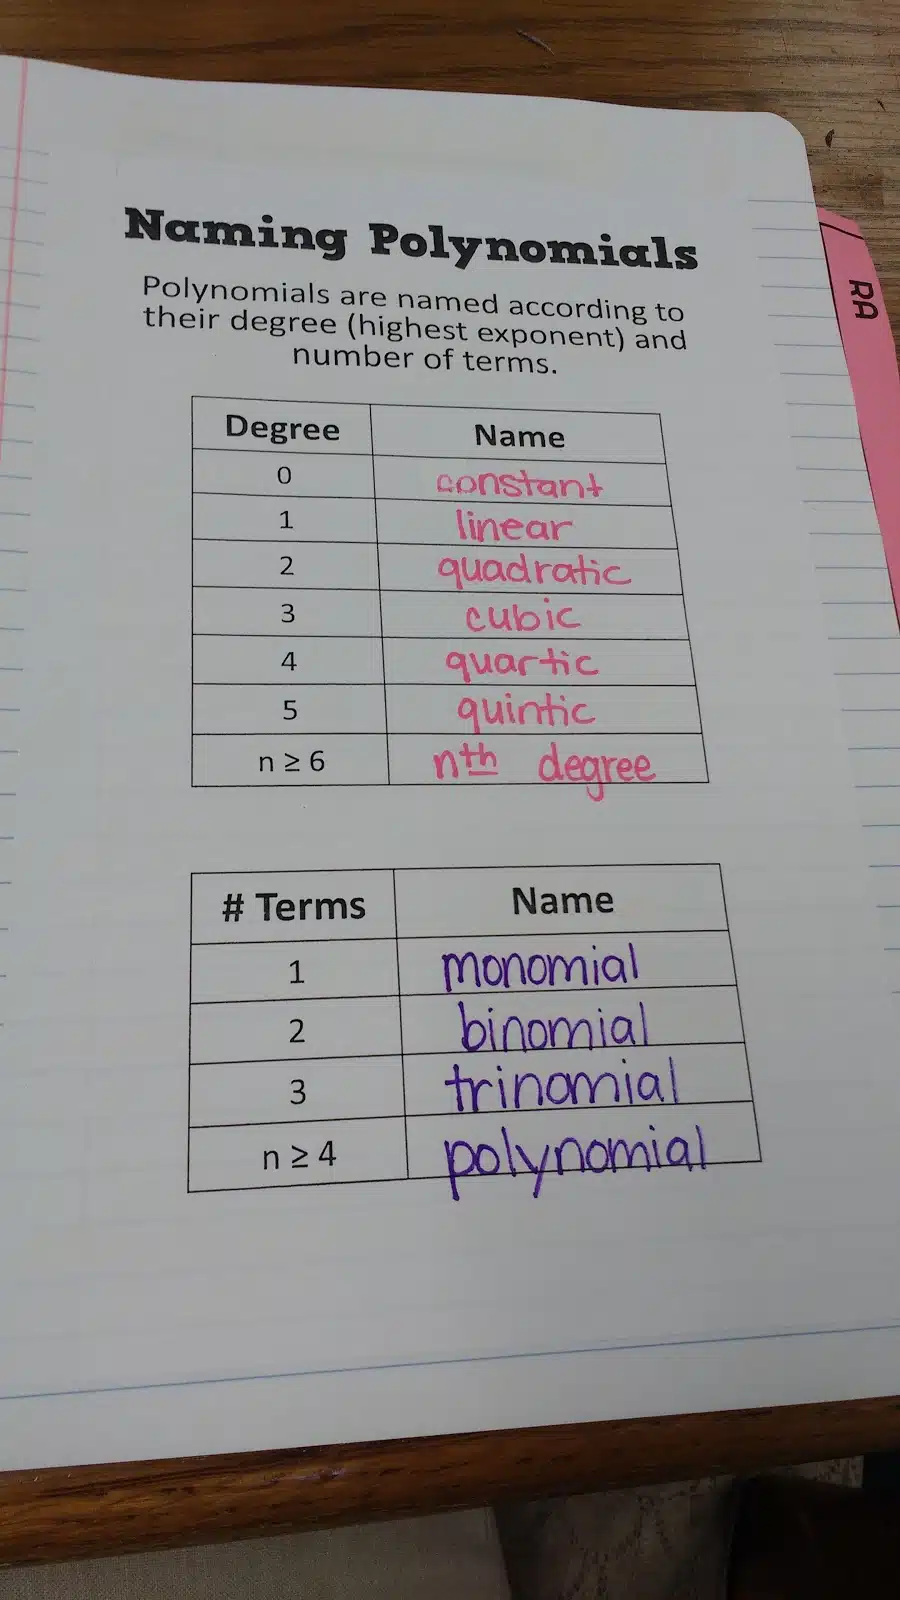 Naming Polynomials
Polynomials are named according to
their degree (highest exponent) and
number of terms.
Degree Name
0 constant
1 linear
2 quadratic
3 cubic
4 quartic
5 quintic
n ≥ 6 nth degree
# Terms Name
1 monomial
2 binomial
3 trinomial
n ≥ 4 polynomial
RA